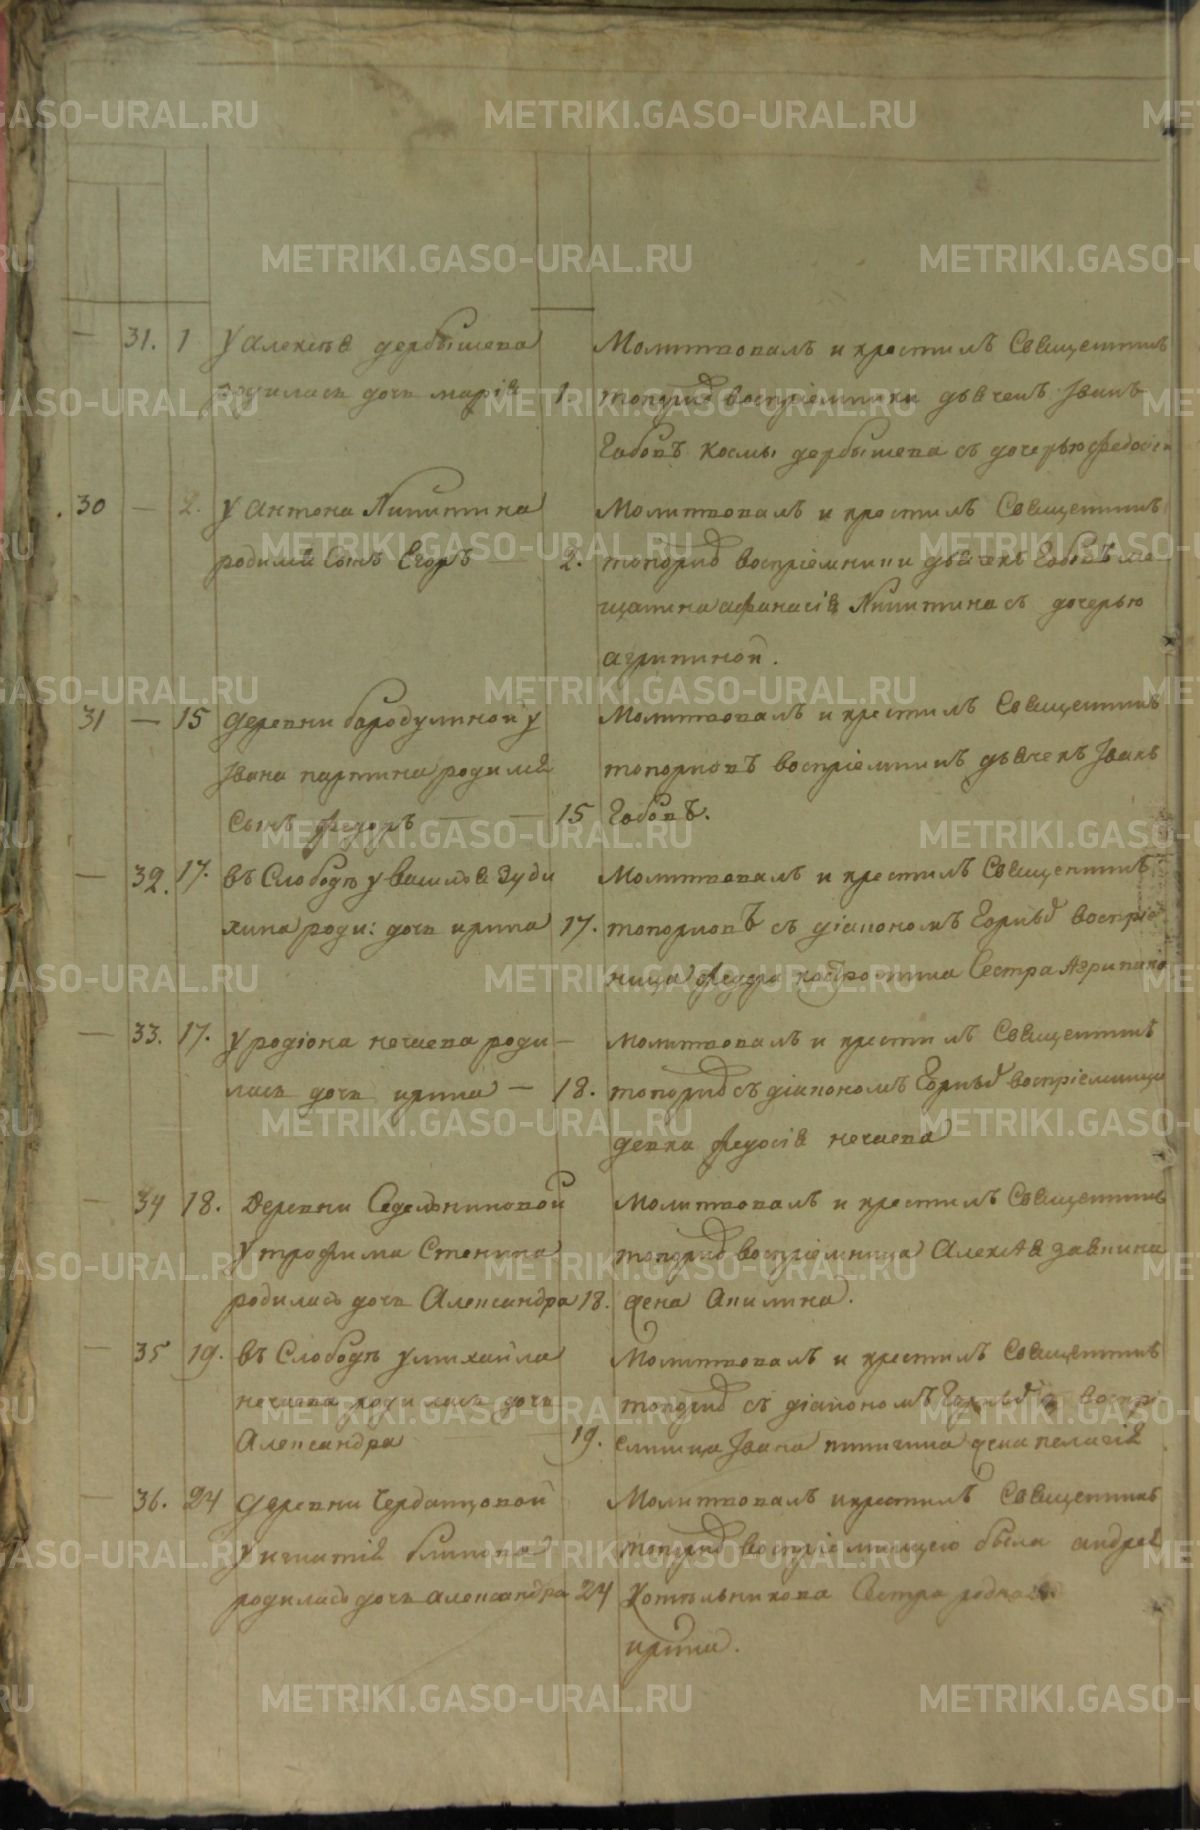 METRIKI.GASO-URAL.RU
— 31. 1 У Алексѣя дербышева
родилась дочь марія 1.
Молитвовалъ и крестилъ Священникъ
топорков воспріемники дьячекъ Іванъ
Бабовъ космы дербышева съ дочерью федосіе
30 — 2. У Антона Никитина
родился сынъ Егоръ — 2.
Молитвовалъ и крестилъ Священникъ
топорков воспріемники дьячекъ Бабовъ ме-
щанина афанасія Никитина съ дочерью
агрипиной.
31 — 15 деревни бародулиной у
Івана партина родился
Сынъ федоръ — — 15
Молитвовалъ и крестилъ Священникъ
топорковъ воспріемникъ дьячекъ Іванъ
Бабовъ.
— 32. 17. въ Слободѣ у василья Зуди
хина роди: дочь ирина 17.
Молитвовалъ и крестилъ Священникъ
топорковъ съ діакономъ воспріе
ница федора костромина Сестра Агрипина
— 33. 17. у родіона нечаева роди —
лась дочь ирина — 18.
молитвовалъ и крестилъ Священникъ
топорков съ діакономъ воспріемница
девка федосія нечаева
— 34 18. Деревни Седельниковой
у трофима Стенина
родилась дочь Александра 18.
Молитвовалъ и крестилъ Священникъ
топорков воспріемница Алексѣя
жена Акилина.
— 35 19. въ Слободѣ у михайла
нечаева родилась дочь
Александра 19.
Молитвовалъ и крестилъ Священникъ
топорков съ діакономъ воспрі
емница Івана жена пелагія
— 36. 24 деревни Чердатцовой
У игнатія блинова
родилась дочь александра 24
Молитвовалъ и крестилъ Священникъ
топорков воспріемницею была андрея
Котельникова Сестра родная
ирина.